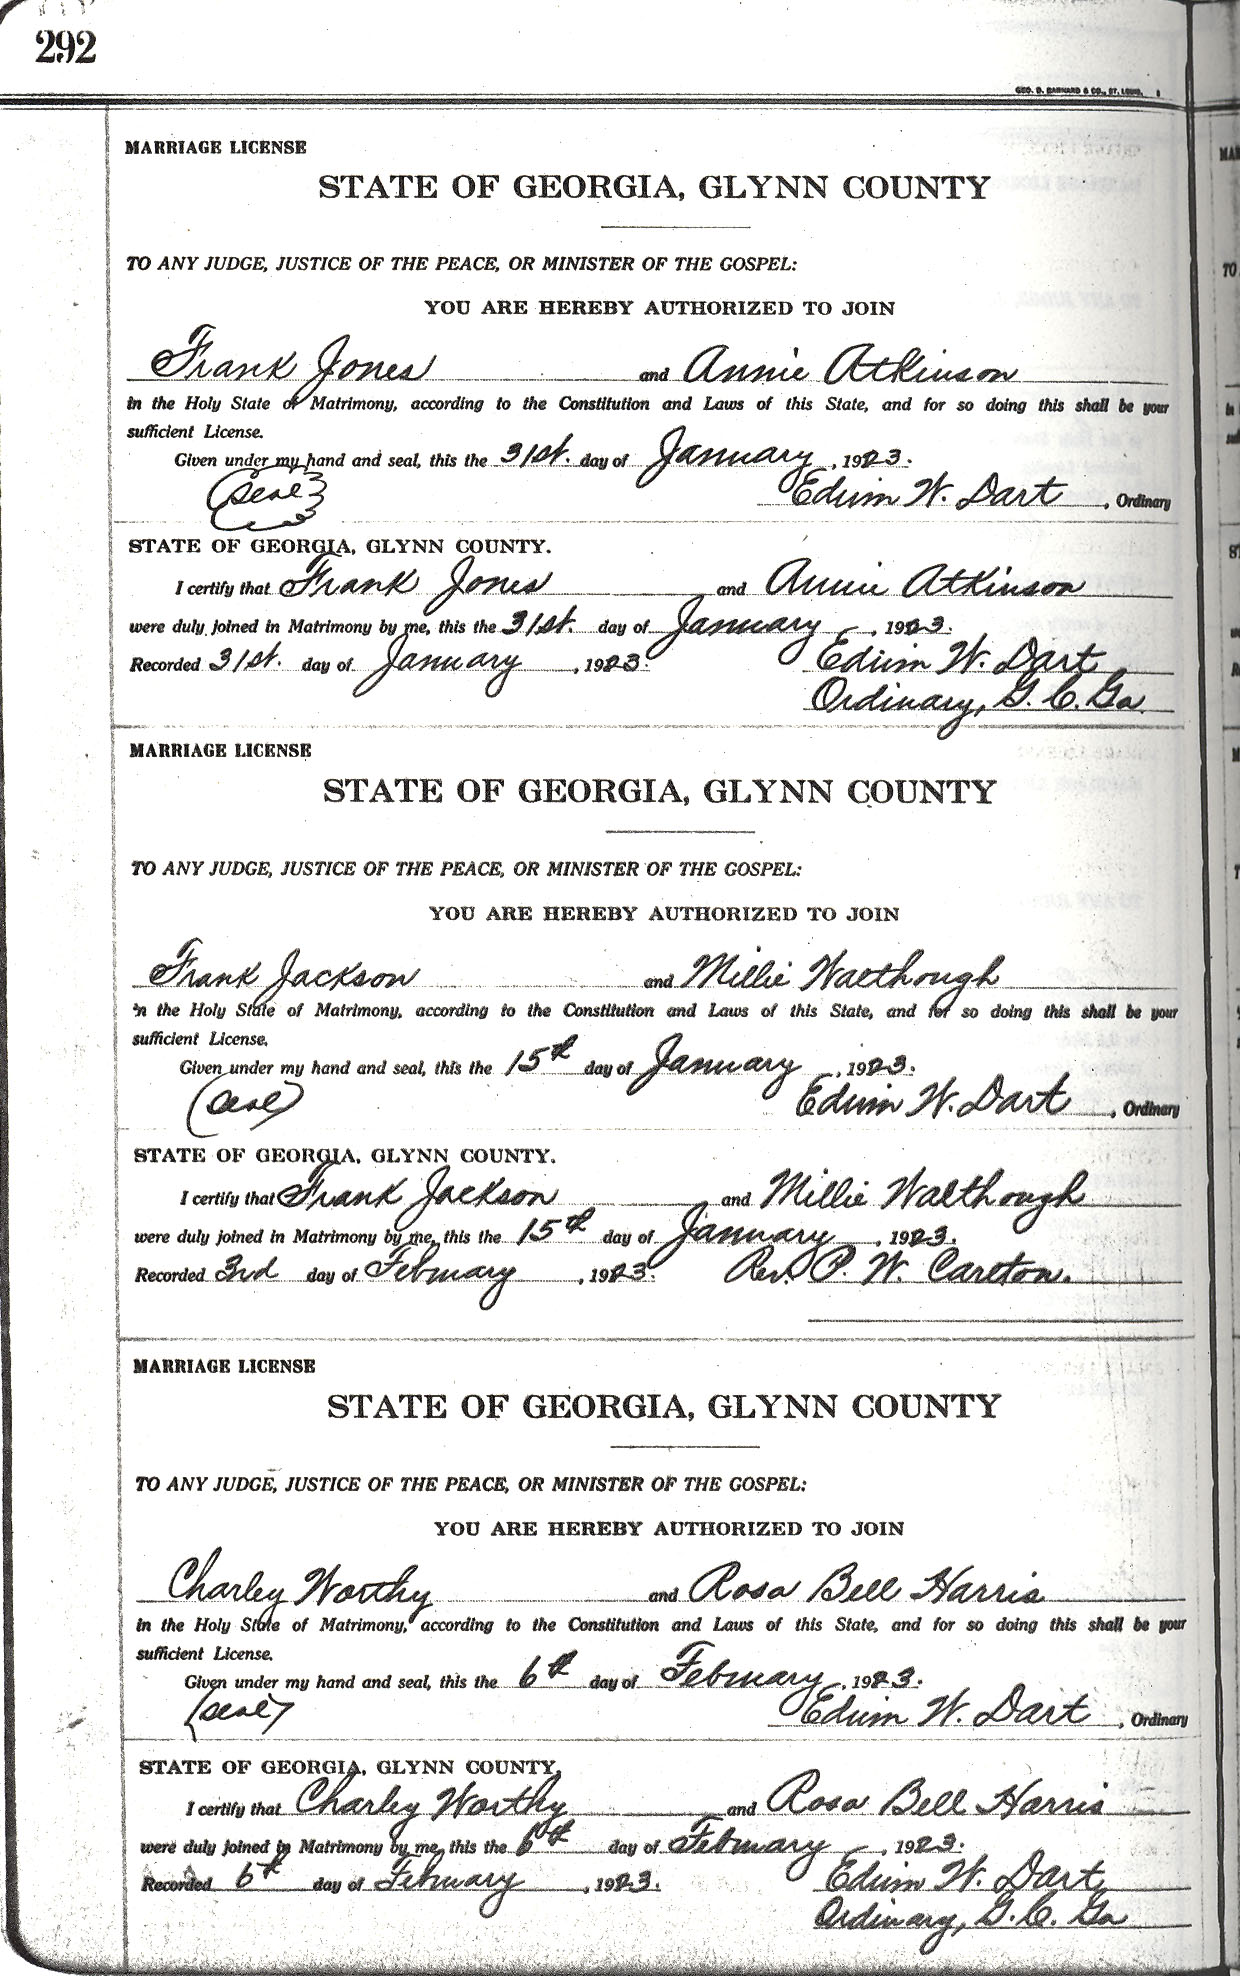 292
GEO. D. BARNARD & CO., ST. LOUIS.
MARRIAGE LICENSE
STATE OF GEORGIA, GLYNN COUNTY
TO ANY JUDGE, JUSTICE OF THE PEACE, OR MINISTER OF THE GOSPEL:
YOU ARE HEREBY AUTHORIZED TO JOIN
Frank Jones and Annie Atkinson
in the Holy State of Matrimony, according to the Constitution and Laws of this State, and for so doing this shall be your
sufficient License.
Given under my hand and seal, this the 31st. day of January, 1923.
(Seal) Edwin W. Dart, Ordinary
STATE OF GEORGIA, GLYNN COUNTY.
I certify that Frank Jones and Annie Atkinson
were duly joined in Matrimony by me, this the 31st. day of January, 1923.
Recorded 31st. day of January, 1923. Edwin W. Dart
Ordinary, G. C. Ga.
MARRIAGE LICENSE
STATE OF GEORGIA, GLYNN COUNTY
TO ANY JUDGE, JUSTICE OF THE PEACE, OR MINISTER OF THE GOSPEL:
YOU ARE HEREBY AUTHORIZED TO JOIN
Frank Jackson and Millie Walthough
in the Holy State of Matrimony, according to the Constitution and Laws of this State, and for so doing this shall be your
sufficient License.
Given under my hand and seal, this the 15th day of January, 1923.
(Seal) Edwin W. Dart, Ordinary
STATE OF GEORGIA, GLYNN COUNTY.
I certify that Frank Jackson and Millie Walthough
were duly joined in Matrimony by me, this the 15th day of January, 1923.
Recorded 3rd day of February, 1923. Rev. P. W. Carlton.
MARRIAGE LICENSE
STATE OF GEORGIA, GLYNN COUNTY
TO ANY JUDGE, JUSTICE OF THE PEACE, OR MINISTER OF THE GOSPEL:
YOU ARE HEREBY AUTHORIZED TO JOIN
Charley Worthy and Rosa Bell Harris
in the Holy State of Matrimony, according to the Constitution and Laws of this State, and for so doing this shall be your
sufficient License.
Given under my hand and seal, this the 6th day of February, 1923.
(Seal) Edwin W. Dart, Ordinary
STATE OF GEORGIA, GLYNN COUNTY.
I certify that Charley Worthy and Rosa Bell Harris
were duly joined in Matrimony by me, this the 6th day of February, 1923.
Recorded 6th day of February, 1923. Edwin W. Dart
Ordinary, G. C. Ga